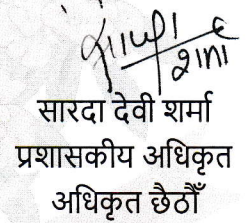 सारदा देवी शर्मा
प्रशासकीय अधिकृत
अधिकृत छैठौँ